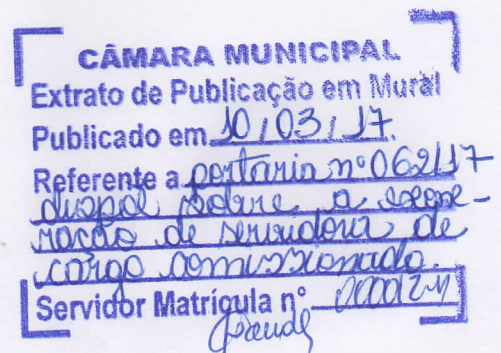 CÂMARA MUNICIPAL
Extrato de Publicação em Mural
Publicado em 10/03/17.
Referente a portaria nº 062/17
dispõe sobre a exone-
ração de servidora de
cargo comissionado.
Servidor Matrícula nº